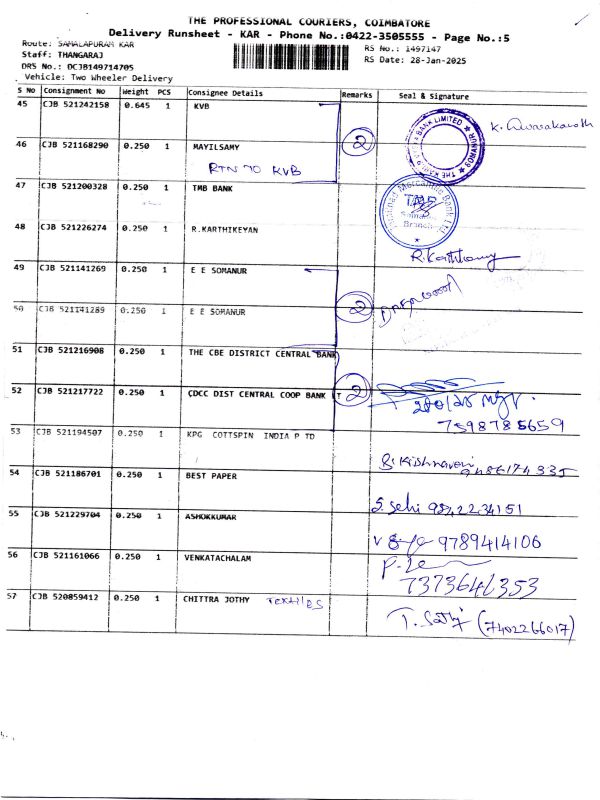 THE PROFESSIONAL COURIERS, COIMBATORE
Delivery Runsheet - KAR - Phone No.:0422-3505555 - Page No.:5
Route: SAMALAPURAM KAR
RS No.: 1497147
Staff: THANGARAJ
RS Date: 28-Jan-2025
DRS No.: DCJB149714705
Vehicle: Two Wheeler Delivery
S No Consignment No Weight PCS Consignee Details Remarks Seal & Signature
45 CJB 521242158 0.645 1 KVB
46 CJB 521168290 0.250 1 MAYILSAMY 2
RTN TO KVB
47 CJB 521200328 0.250 1 TMB BANK
48 CJB 521226274 0.250 1 R.KARTHIKEYAN
49 CJB 521141269 0.250 1 E E SOMANUR
50 CJB 521141289 0.250 1 E E SOMANUR 2
51 CJB 521216908 0.250 1 THE CBE DISTRICT CENTRAL BANK
52 CJB 521217722 0.250 1 CDCC DIST CENTRAL COOP BANK T 2
7598785659
53 CJB 521194507 0.250 1 KPG COTTSPIN INDIA P TD
54 CJB 521186701 0.250 1 BEST PAPER
55 CJB 521229704 0.250 1 ASHOKKUMAR
9789414106
56 CJB 521161066 0.250 1 VENKATACHALAM
7373641353
57 CJB 520859412 0.250 1 CHITTRA JOTHY TEXTILES
(7402266017)